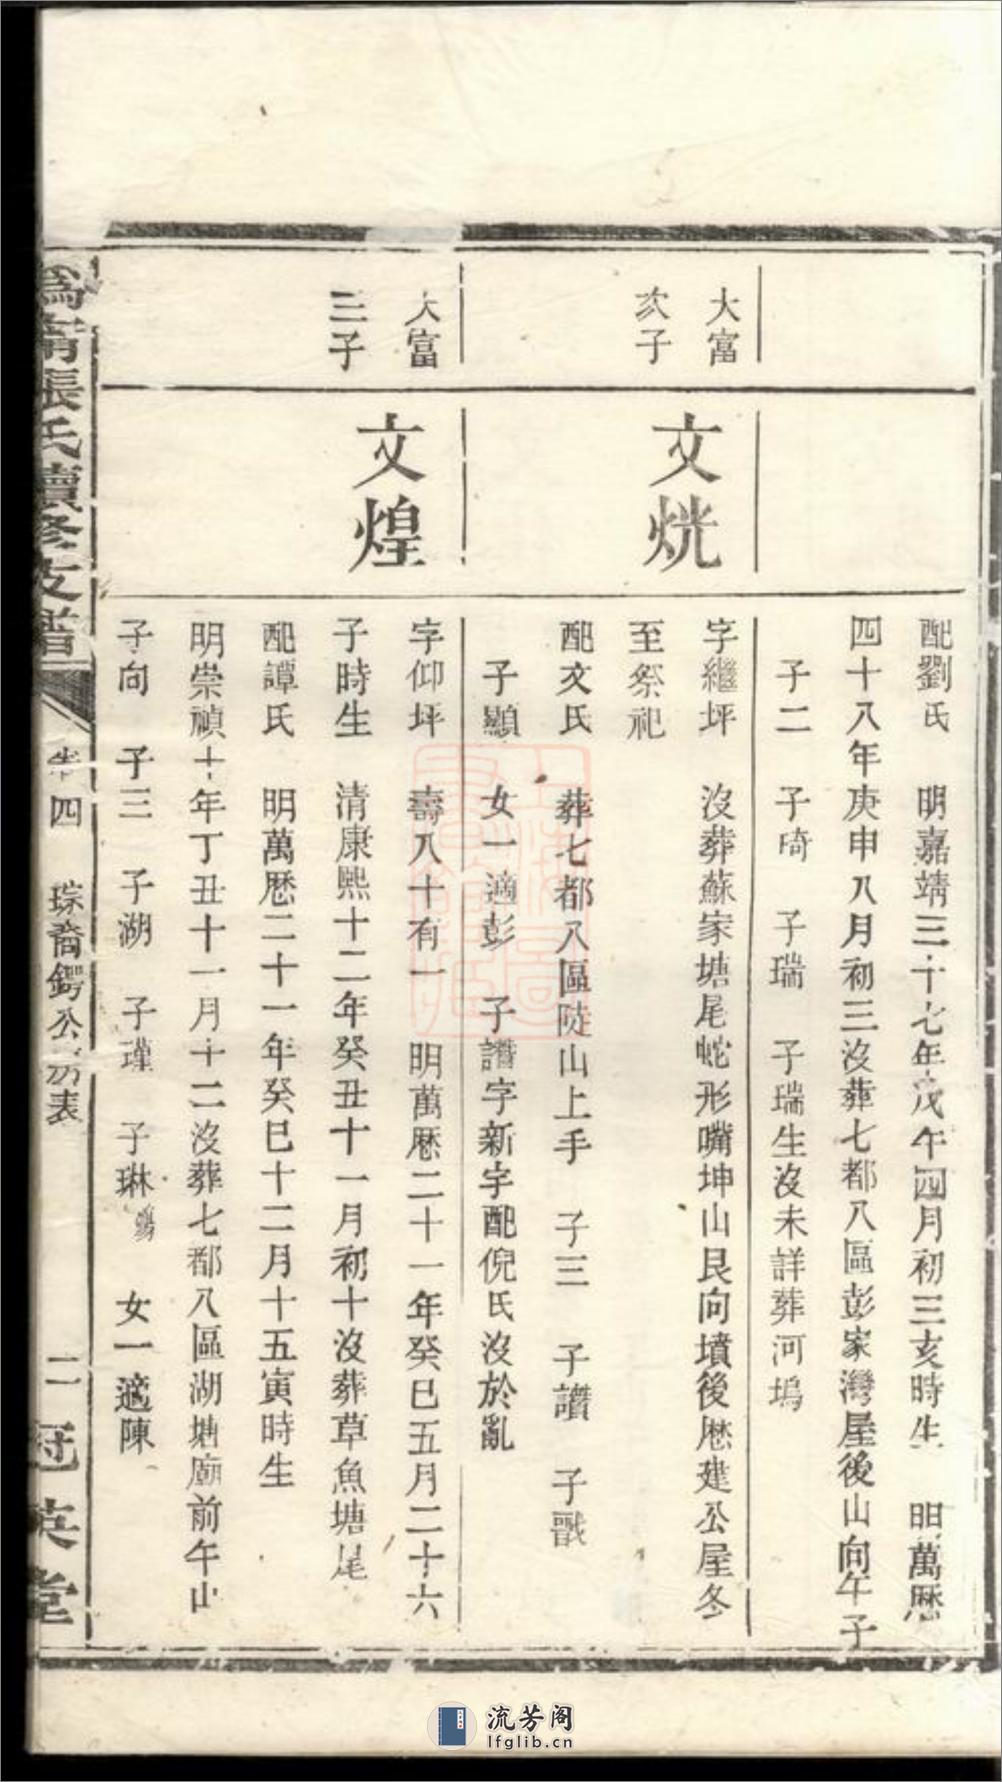 配劉氏　明嘉靖三十七年戊午四月初三亥時生　明萬曆
四十八年庚申八月初三沒葬七都八區彭家灣屋後山向午子
子二　子琦　子瑞　子瑞生沒未詳葬河塢
大富
次子
文烑
字繼坪　沒葬蘇家塘尾蛇形嘴坤山艮向墳後厯建公屋冬
至祭祀
配文氏　葬七都八區陡山上手　子三　子讃　子戬
子顯　女一適彭　子讃字新宇配倪氏沒於亂
大富
三子
文煌
字仰坪　壽八十有一　明萬厯二十一年癸巳五月二十六
子時生　清康熙十二年癸丑十一月初十沒葬草魚塘尾
配譚氏　明萬厯二十一年癸巳十二月十五寅時生
明崇禎十年丁丑十一月十二沒葬七都八區湖塘廟前午山
子向　子三　子湖　子瑾　子琳　女一適陳
溈甯張氏續修支譜
卷四　琮裔鍔公房表
二　冠英堂
流芳阁
lfglib.cn